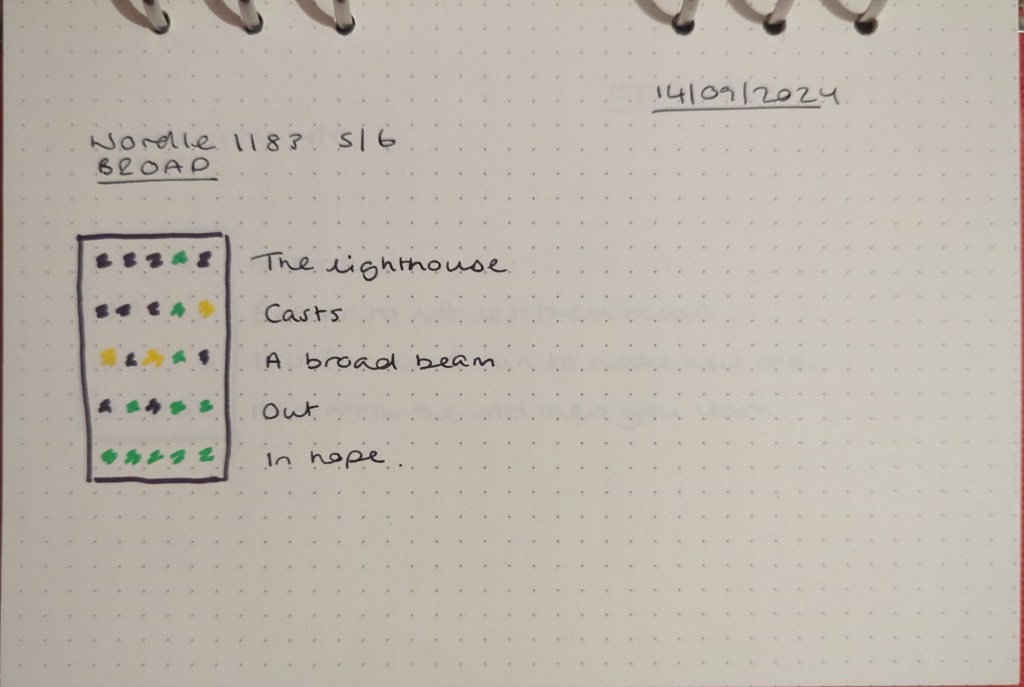 14/09/2024
Wordle 1183 5/6
BROAD
The lighthouse
Casts
A broad beam
Out
In hope.